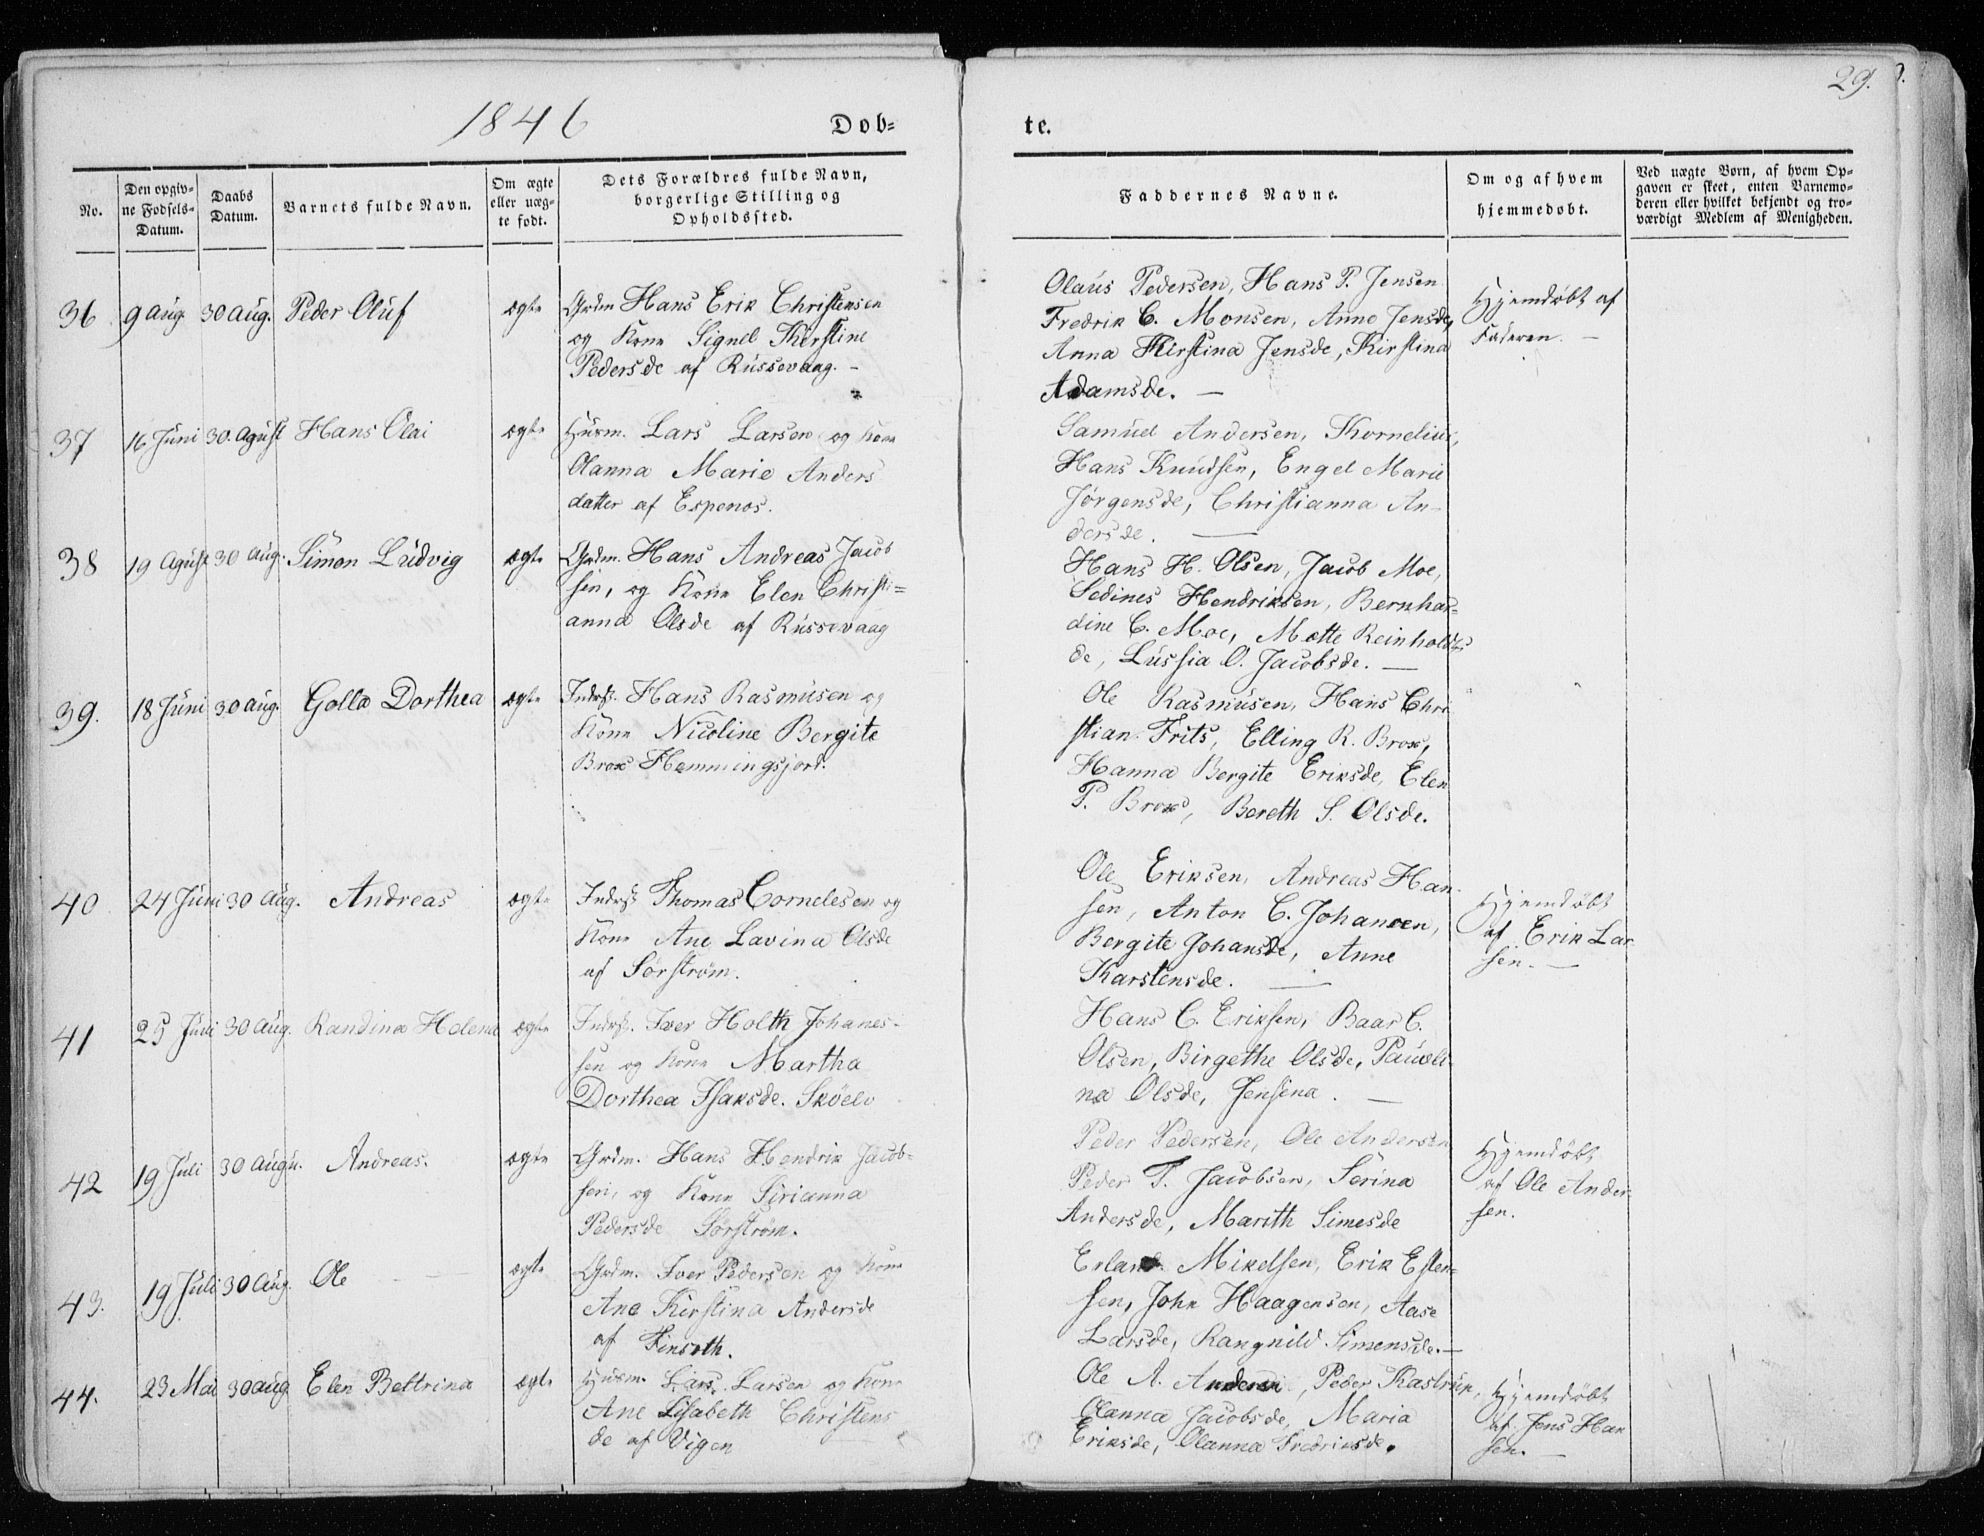 29.
1846
Dob=
te.
No.
Den opgiv-
ne Fodsels-
Datum.
Daabs
Datum.
Barnets fulde Navn.
Om ægte
eller uæg-
te født.
Dets Forældres fulde Navn,
borgerlige Stilling og
Opholdssted.
Faddernes Navne.
Om og af hvem
hjemmedobt.
Ved uægte Born, af hvem Op-
gaven er skeet, enten Barnemo-
deren eller hvilket bekjendt og tro-
værdigt Medlem af Menigheden.
36 9 aug. 30 aug. Peder Oluf ægte Grdm Hans Erik Christensen
og Kone Signel Kirstine
Pedersde af Russevaag. -
Olaus Pedersen, Hans P. Jensen
Fredrik C. Monsen, Anne Jensde,
Anna Kirstina Jensde, Kirstina
Adamsde. —
Hjemdøbt af
Faderen. —
37 16 Juni 30. Agust Hans Olai ægte Husm. Lars Larsen og Kone
Olanna Marie Anders
datter af Espenos.
Samuel Andersen, Kornelius,
Hans Knudsen, Engel Marie
Jørgensde, Christianna An-
dersde. —
38 19 Agust 30 aug. Simon Ludvig ægte Grdm. Hans Andreas Jacob
sen, og Kone Elen Christi=
anna Olsde af Russevaag
Hans H. Olsen, Jacob Moe,
Sedines Hendriksen, Bernhar=
dine C. Moe, Mette Reinholds
de, Lussia O. Jacobsde. —
39. 18 Juni 30 aug. Golla Dorthea ægte Inders. Hans Rasmusen og
Kone Nicoline Bergite
Brox Hemmingsjord.
Ole Rasmusen, Hans Chri
stian Frits, Elling R. Brox,
Hanna Bergite Eriksde, Elen
P. Brox, Bereth S. Olsde.
40 24 Juni 30 aug. Andreas ægte Inders. Thomas Cornelesen og
Kone Ane Lavina Olsde
af Sørstrøm.
Ole Eriksen, Andreas Han
sen, Anton C. Johansen,
Bergite Johansde, Anne
Karstensde. —
Hjemdøbt
af Erik Lar
sen. —
41 25 Juni 30 aug. Randina Helena ægte Inders. Iver Holth Johanes-
sen og Kone Martha
Dorthea Isaksde. Sköelv
Hans C. Eriksen, Baar C.
Olsen, Birgethe Olsde, Pauoli
na Olsde, Jensina. —
42 19 Juli 30 augu. Andreas. ægte Grdm. Hans Hendrik Jacob=
sen, og Kone Sirianna
Pedersde Sørstrøm.
Peder Pedersen, Ole Andersen
Peder T. Jacobsen, Serina
Andersde, Marith Simesde
Hjemdøbt
af Ole Ander
sen.
43. 19 Juli 30 aug. Ole — ægte Grdm. Iver Pedersen og Kone
Ane Kirstina Andersde
af Finseth.
Erland Mikelsen, Erik Esten=
sen, John Haagensen, Aase
Larsde, Rangnild Simensde. —
44. 23 Mai 30 aug. Elen Beltrina ægte Husm. Lars Larsen og Kone
Ane Lisabeth Christens
de af Vigen
Ole A. Andersen, Peder Kastrup,
Olanna Jacobsde, Maria
Eriksde, Olanna Fredriksde.
Hjemdøbt
af Jens Han
sen. —